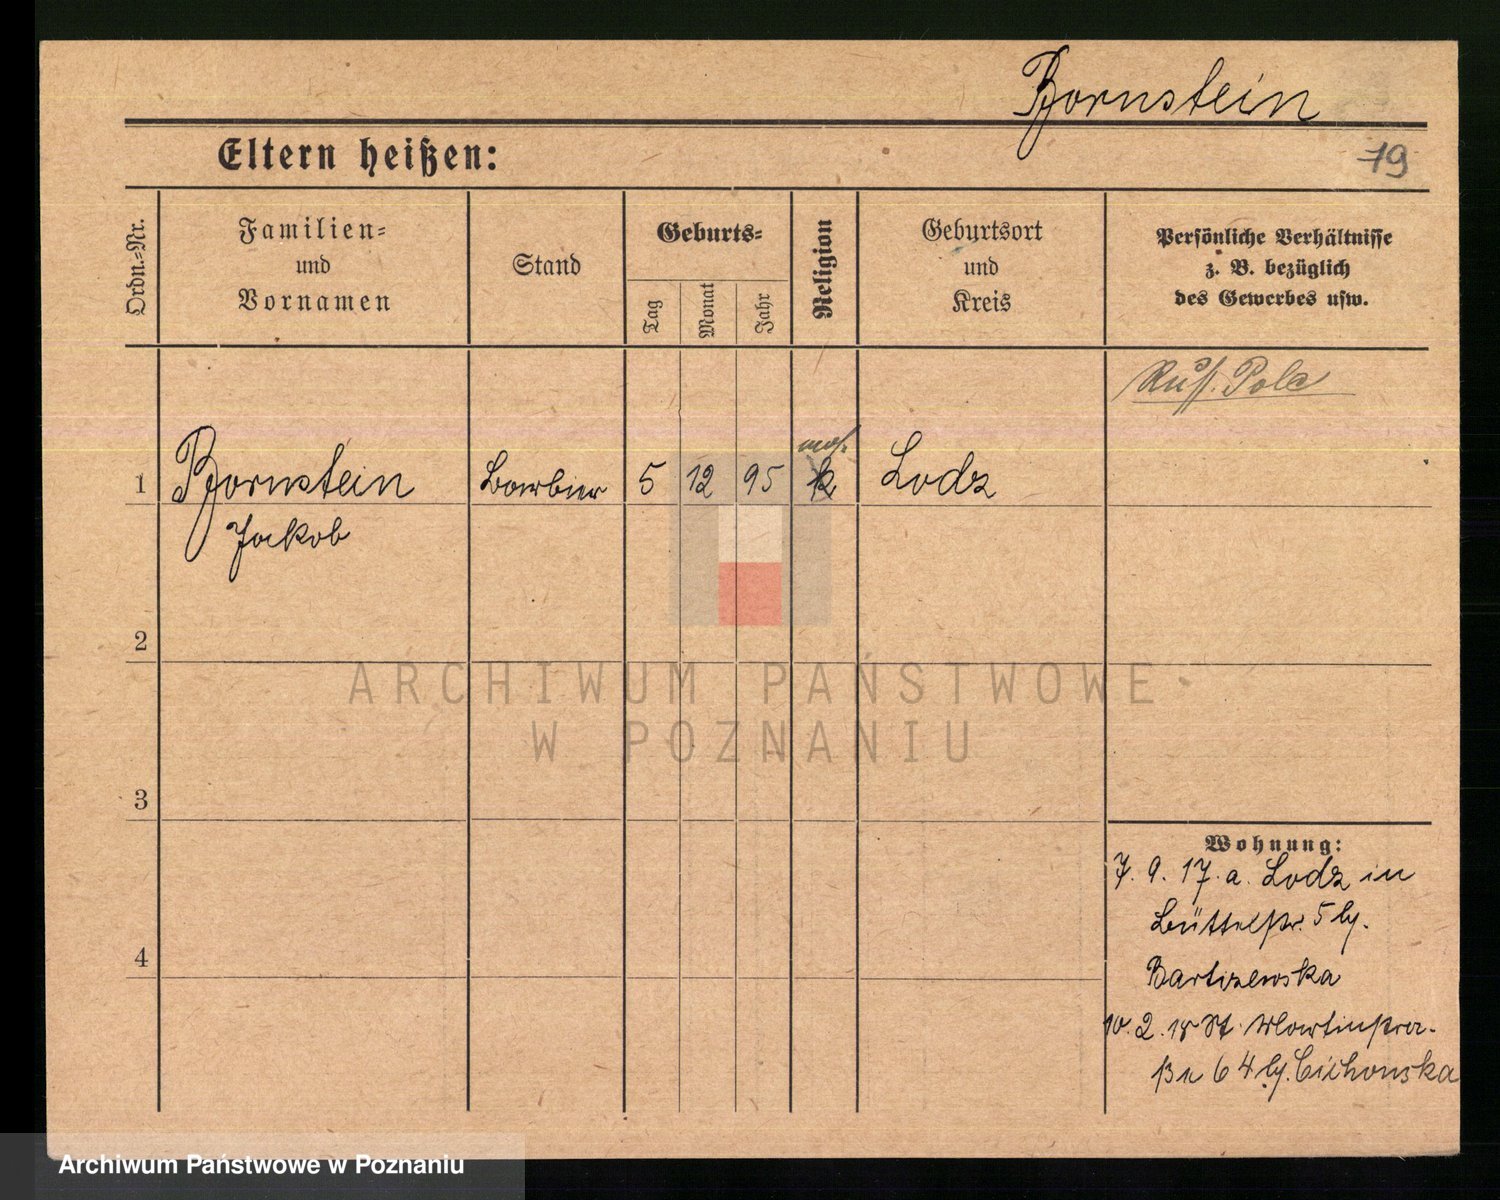 Bornstein
Eltern heißen:
79
Ordn.-Nr.
Familien-
und
Vornamen
Stand
Geburts-
Tag
Monat
Jahr
Religion
Geburtsort
und
Kreis
Persönliche Verhältnisse
z. B. bezüglich
des Gewerbes usw.
Russ. Pole
mos.
1 Bornstein Barbier 5 12 95 k Lodz
Jakob
2
ARCHIWUM PAŃSTWOWE
W POZNANIU
3
Wohnung:
7. 9. 17. a. Lodz in
Büttelstr. 5 by.
Bartizewska
4
10. 2. 18 St. Martinstra-
ße 64 by. Cichowska
Archiwum Państwowe w Poznaniu